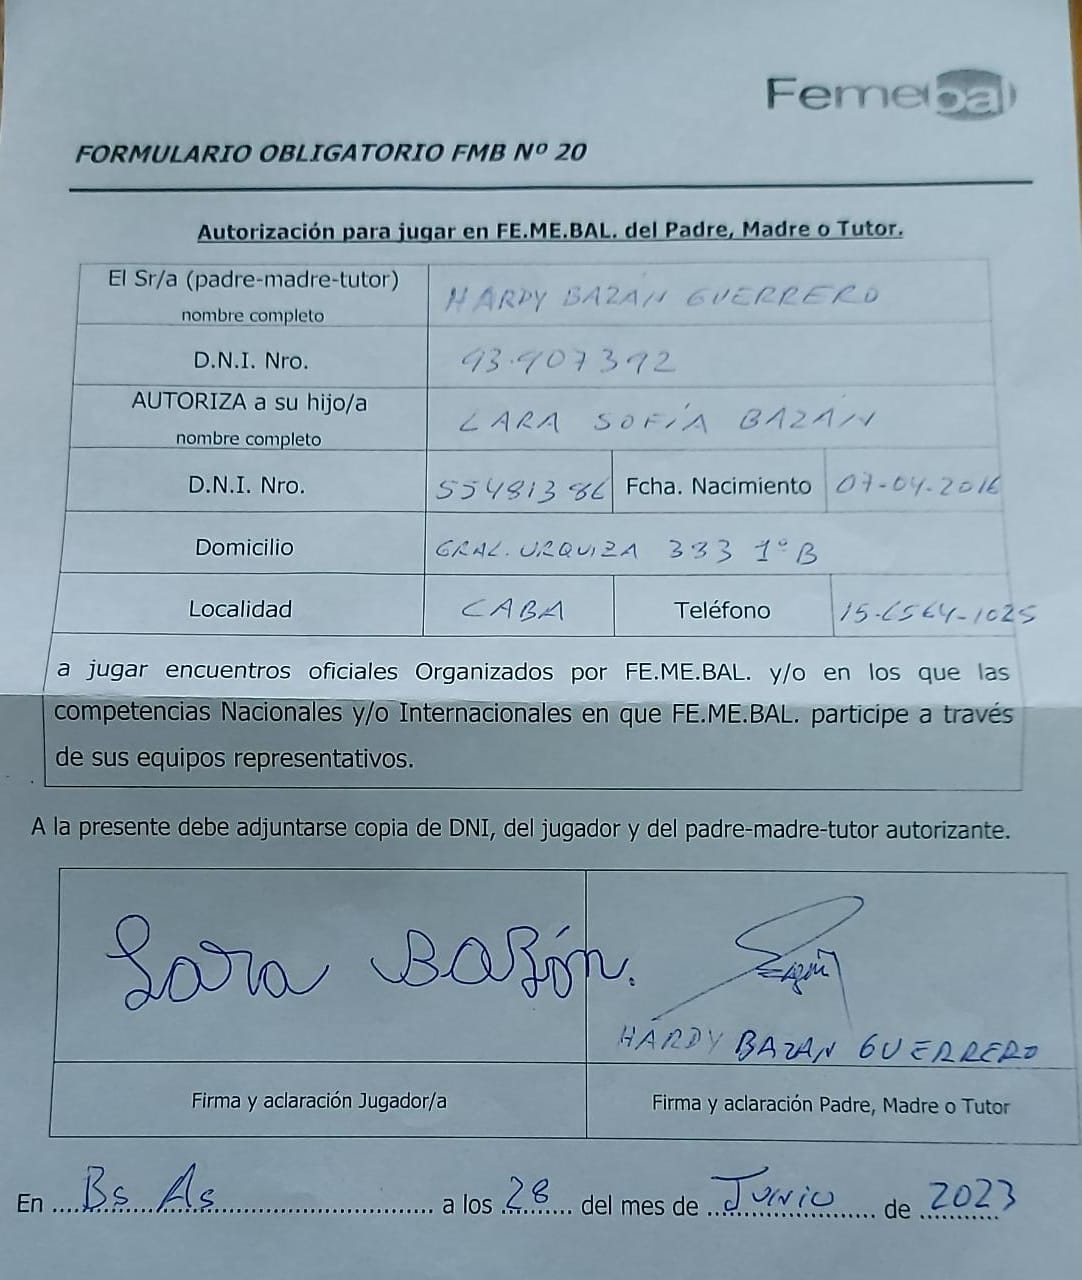 Femebal
FORMULARIO OBLIGATORIO FMB Nº 20
Autorización para jugar en FE.ME.BAL. del Padre, Madre o Tutor.
El Sr/a (padre-madre-tutor) HARDY BAZÁN GUERRERO
nombre completo
D.N.I. Nro. 93.907392
AUTORIZA a su hijo/a LARA SOFÍA BAZÁN
nombre completo
D.N.I. Nro. 55481386 Fcha. Nacimiento 07-04-2016
Domicilio GRAL. URQUIZA 333 1º B
Localidad CABA Teléfono 15-6564-1025
a jugar encuentros oficiales Organizados por FE.ME.BAL. y/o en los que las
competencias Nacionales y/o Internacionales en que FE.ME.BAL. participe a través
de sus equipos representativos.
A la presente debe adjuntarse copia de DNI, del jugador y del padre-madre-tutor autorizante.
Lara Bazán.
HARDY BAZAN GUERRERO
Firma y aclaración Jugador/a Firma y aclaración Padre, Madre o Tutor
En Bs As a los 28 del mes de Junio de 2023